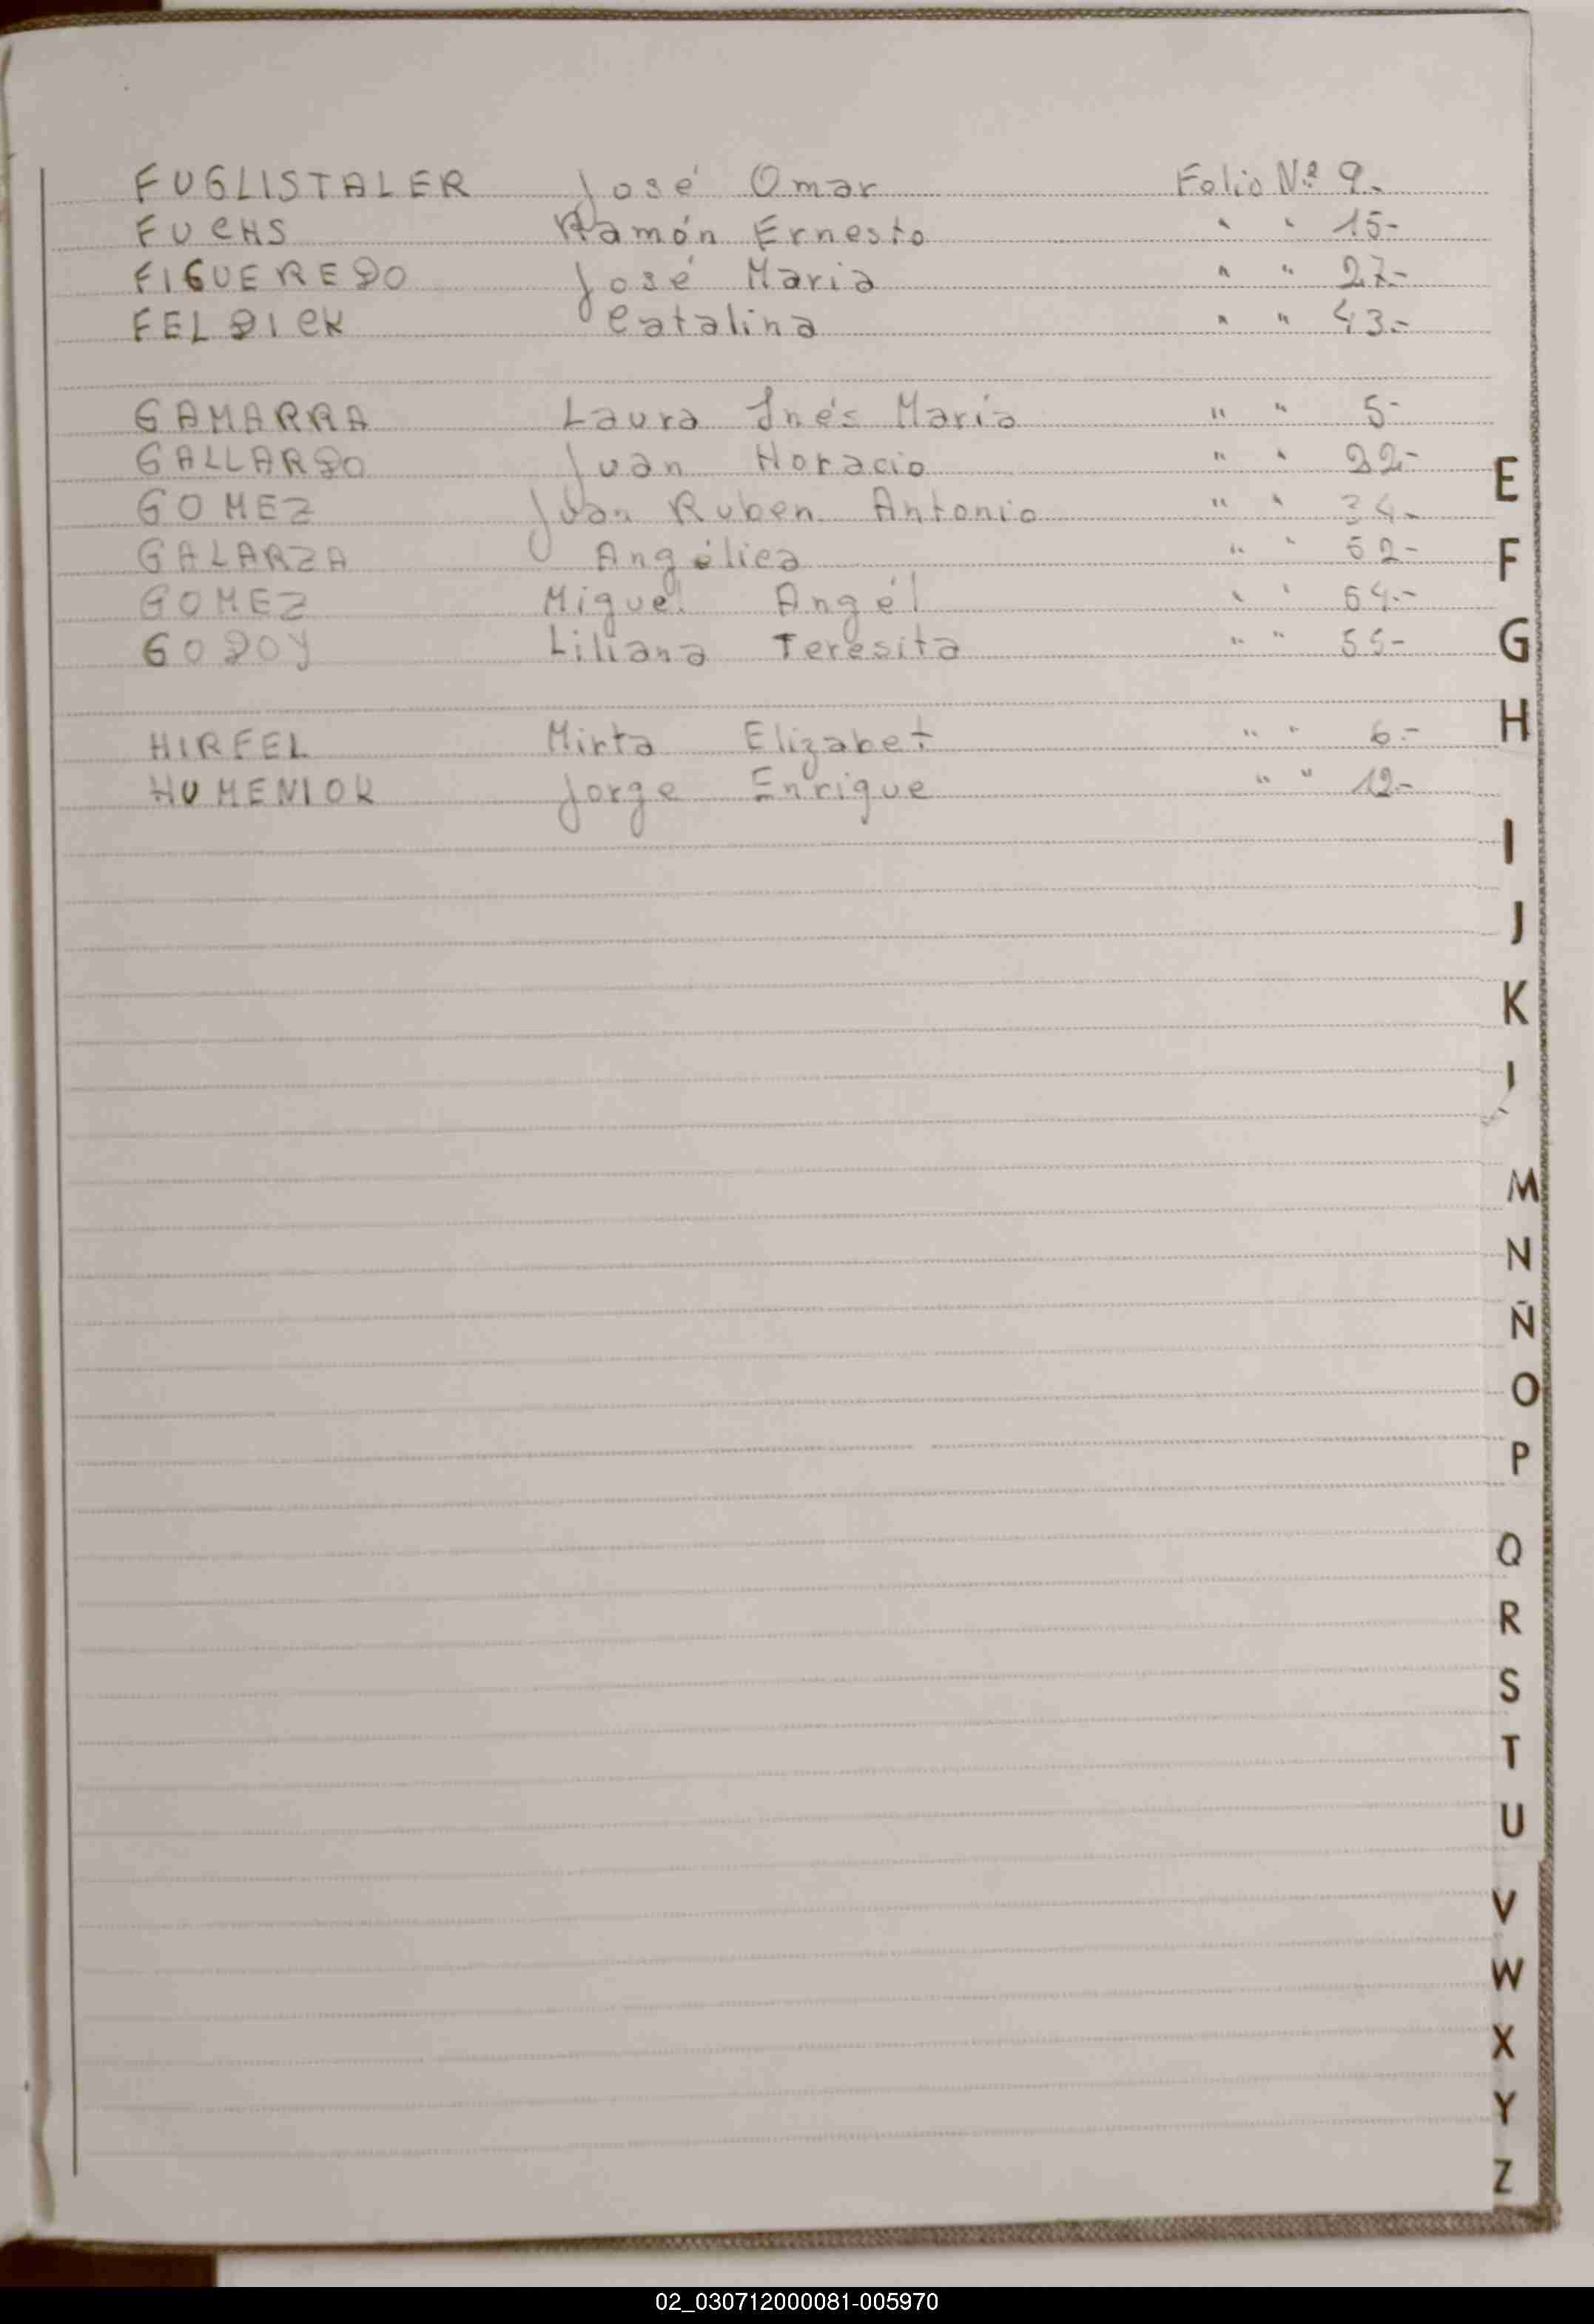 FUGLISTALER José Omar Folio Nº 9.
FUCHS Ramón Ernesto " " 15-
FIGUEREDO José Maria " " 27-
FELDICK Catalina " " 43.-
GAMARRA Laura Inés María " " 5-
GALLARDO Juan Horacio " " 22-
GOMEZ Juan Ruben Antonio " " 34.-
GALARZA Angélica " " 52-
GOMEZ Miguel Angél " " 54.-
GODOY Liliana Teresita " " 55-
HIRFEL Mirta Elizabet " " 6.-
HUMENIOK Jorge Enrique " " 12-
E
F
G
H
I
J
K
M
N
Ñ
O
P
Q
R
S
T
U
V
W
X
Y
Z
02_030712000081-005970